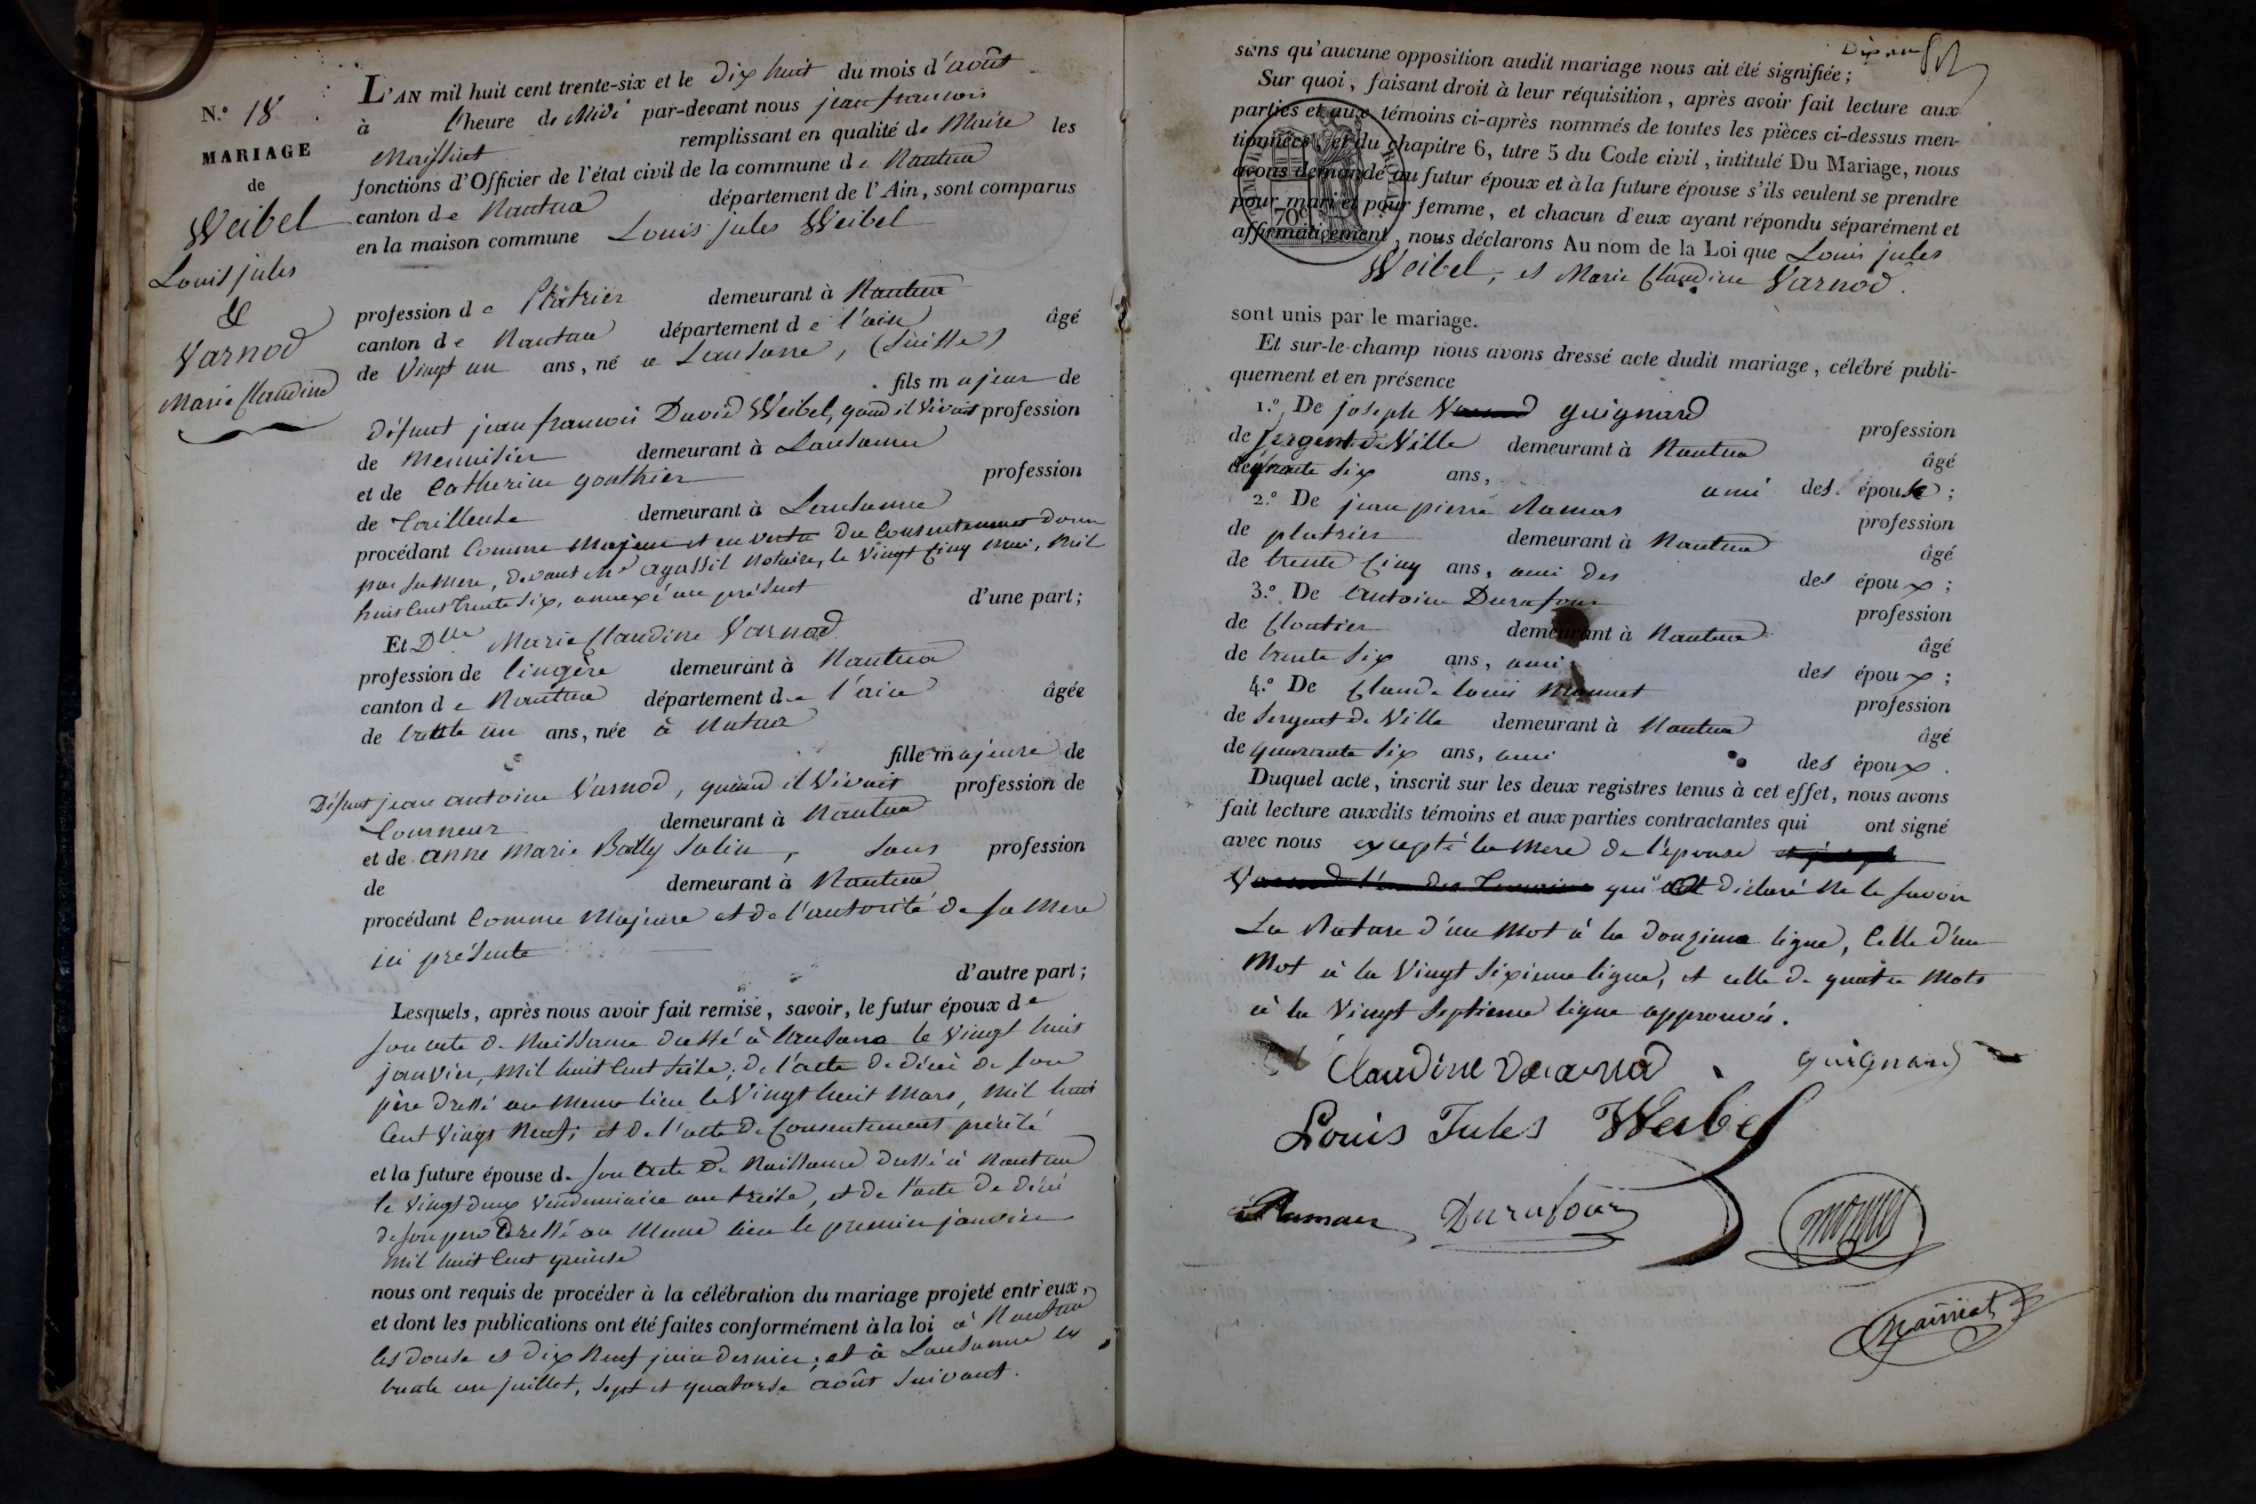 N.° 18
MARIAGE
de
Weibel
Louis jules
&
Varnod
Marie Claudine
L'AN mil huit cent trente-six et le dix huit du mois d'août
à l'heure de Midi par-devant nous jean francois
remplissant en qualité de Maire les
fonctions d'Officier de l'état civil de la commune de Nantua
canton de Nantua département de l'Ain, sont comparus
en la maison commune Louis jules Weibel
profession de Plâtrier demeurant à Nantua
canton de Nantua département de l'ain âgé
de Vingt un ans, né a Lausanne, (Suisse)
fils majeur de
défunt jean francois David Weibel, quand il Vivait profession
de Menuisier demeurant à Lausanne
et de Catherine gonthier profession
de tailleuse demeurant à Lausanne
procédant Comme Majeur et en vertu du Consentement donné
par sa Mere, devant Me agassil Notaire, le Vingt Cinq Mai, Mil
huit Cent trente Six, annexé au présent d'une part;
Et Dlle Marie Claudine Varnod
profession de lingère demeurant à Nantua
canton de Nantua département de l'ain âgée
de trente un ans, née à Natua
fille majeure de
Défunt jean antoine Varnod, quand il Vivait profession de
tourneur demeurant à Nantua
et de anne Marie Bally Salin, Sans profession
de demeurant à Nantua
procédant Comme Majeure et de l'autorité de sa Mere
ici présente
d'autre part;
Lesquels, après nous avoir fait remise, savoir, le futur époux de
son acte de Naissance dressé à Lausane le Vingt huit
janvier, Mil huit Cent seize; de l'acte de décè de son
père dressé au Meme lieu le Vingt huit Mars, Mil huit
Cent Vingt Neuf; et de l'acte de Consentement précité
et la future épouse de son acte de Naissance dressé à Nantua
le Vingt deux Vendemiaire an treise, et de l'acte de décè
de son pere dressé au Meme lieu le premier janvier
Mil huit Cent quinse
nous ont requis de procéder à la célébration du mariage projeté entr'eux,
et dont les publications ont été faites conformément à la loi à Nantua
les douse et dix Neuf juin dernier; et à Lausanne les
trente un juillet, sept et quatorse août suivant.
sans qu'aucune opposition audit mariage nous ait été signifiée;
Sur quoi, faisant droit à leur réquisition, après avoir fait lecture aux
parties et aux témoins ci-après nommés de toutes les pièces ci-dessus men-
tionnées, et du chapitre 6, titre 5 du Code civil, intitulé Du Mariage, nous
avons demandé au futur époux et à la future épouse s'ils veulent se prendre
pour mari et pour femme, et chacun d'eux ayant répondu séparément et
affirmativement, nous déclarons Au nom de la Loi que Louis jules
70c
Weibel, et Marie Claudine Varnod.
sont unis par le mariage.
Et sur-le-champ nous avons dressé acte dudit mariage, célébré publi-
quement et en présence
1.° De joseph guignard profession
de sergent de Ville demeurant à Nantua âgé
de trente six ans, ami des époux;
2.° De jean pierre Ramas profession
de platrier demeurant à Nantua âgé
de trente Cinq ans, ami des des époux;
3.° De antoine Durafour profession
de Cloutier demeurant à Nantua âgé
de trente six ans, ami des époux;
4.° De Claude louis Monnet profession
de Sergent de Ville demeurant à Nantua âgé
de quarante six ans, ami des époux.
Duquel acte, inscrit sur les deux registres tenus à cet effet, nous avons
fait lecture auxdits témoins et aux parties contractantes qui ont signé
avec nous excepté la Mere de l'épouse
qui a déclaré Ne le savoir
La Rature d'un Mot à la douzieme ligne, Celle d'un
Mot à la Vingt Sixieme ligne, et celle de quatre Mots
à la Vingt Septieme ligne approuvés.
Claudine Vararnod guignard
Louis Jules Weibel
Ramas Durafour monnet